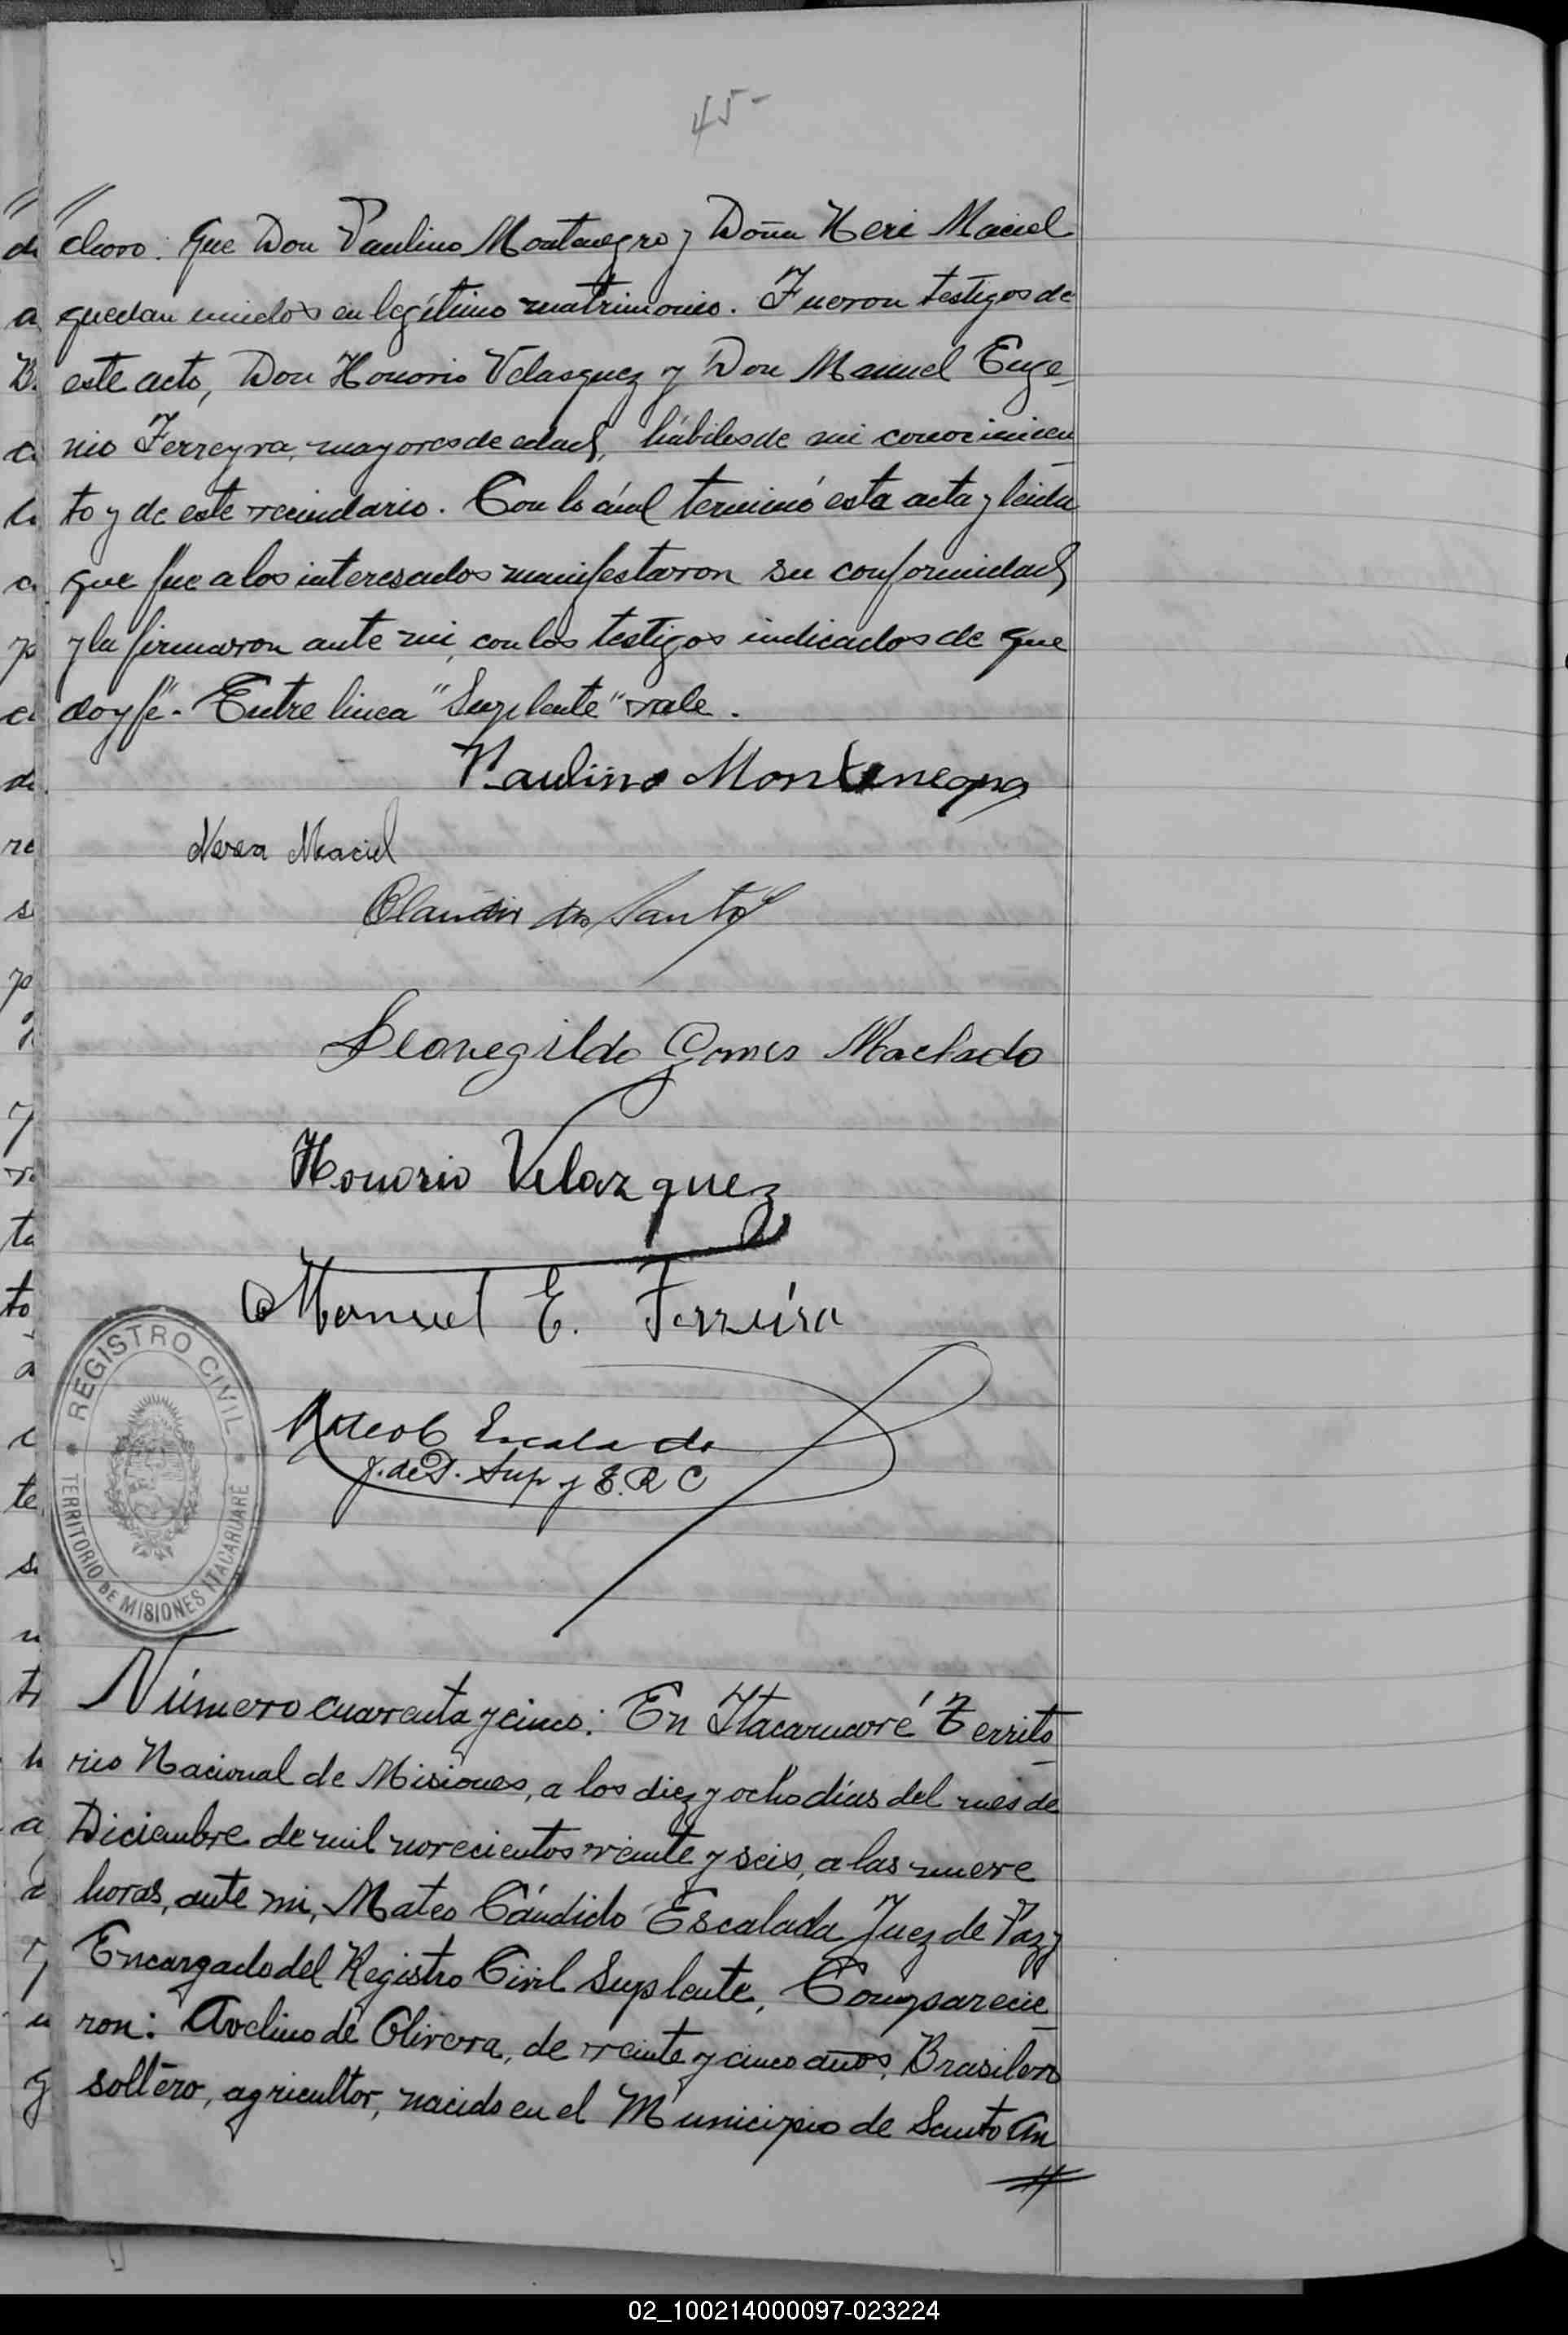 45-
// claro: Que Don Paulino Montenegro y Doña Neri Maciel
quedan unidos en legítimo matrimonio. Fueron testigos de
este acto, Don Honorio Velasquez y Don Manuel Euge-
nio Ferreyra, mayores de edad, hábiles de mi conocimien-
to y de este vecindario. Con lo cúal terminó esta acta y leida
que fue a los interesados manifestaron su conformidad
y la firmaron ante mi, con los testigos indicados de que
doy fé.- Entre linea "Suplente" vale.
Paulino Montenegro
Nerea Maciel
dos Santos
Leovegildo Gomes Machado
Honorio Velazquez
Manuel E. Ferreira
Mateo C Escalada
J. de P. Sup y E. R C
REGISTRO CIVIL
TERRITORIO DE MISIONES ITACARUARÉ
Número cuarenta y cinco: En Itacaruaré Territo-
rio Nacional de Misiones, a los diez y ocho días del mes de
Diciembre de mil novecientos veinte y seis, a las nueve
horas, ante mi, Mateo Cándido Escalada Juez de Paz y
Encargado del Registro Civil Suplente, Comparecie-
ron: Avelino de Olivera, de veinte y cinco años, Brasilero
soltero, agricultor, nacido en el Municipio de Santo An
//
02_100214000097-023224